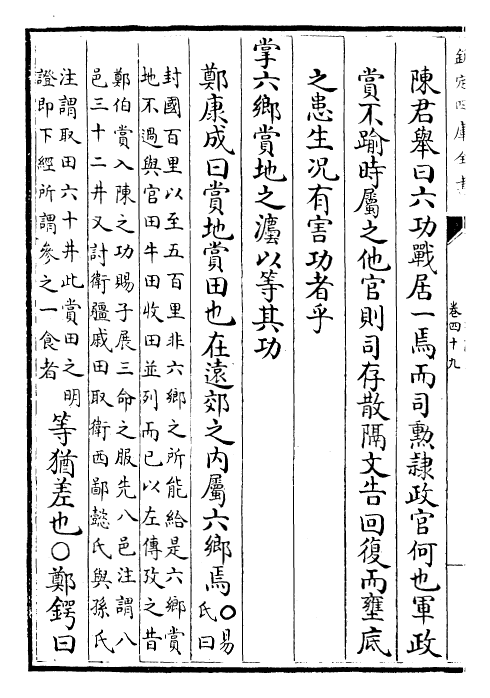 欽定四庫全書
卷四十九
陳君舉曰六功戰居一焉而司勲隷政官何也軍政
賞不踰時屬之他官則司存散隔文告回復而壅底
之患生况有害功者乎
掌六鄉賞地之灋以等其功
鄭康成曰賞地賞田也在遠郊之内屬六鄉焉○易氏曰
封國百里以至五百里非六鄉之所能給是六鄉賞
地不過與官田牛田收田並列而已以左傳攷之昔
鄭伯賞入陳之功賜子展三命之服先八邑注謂八
邑三十二井又討衛疆戚田取衛西鄙懿氏與孫氏
注謂取田六十井此賞田之明
證即下經所謂參之一食者
等猶差也○鄭鍔曰